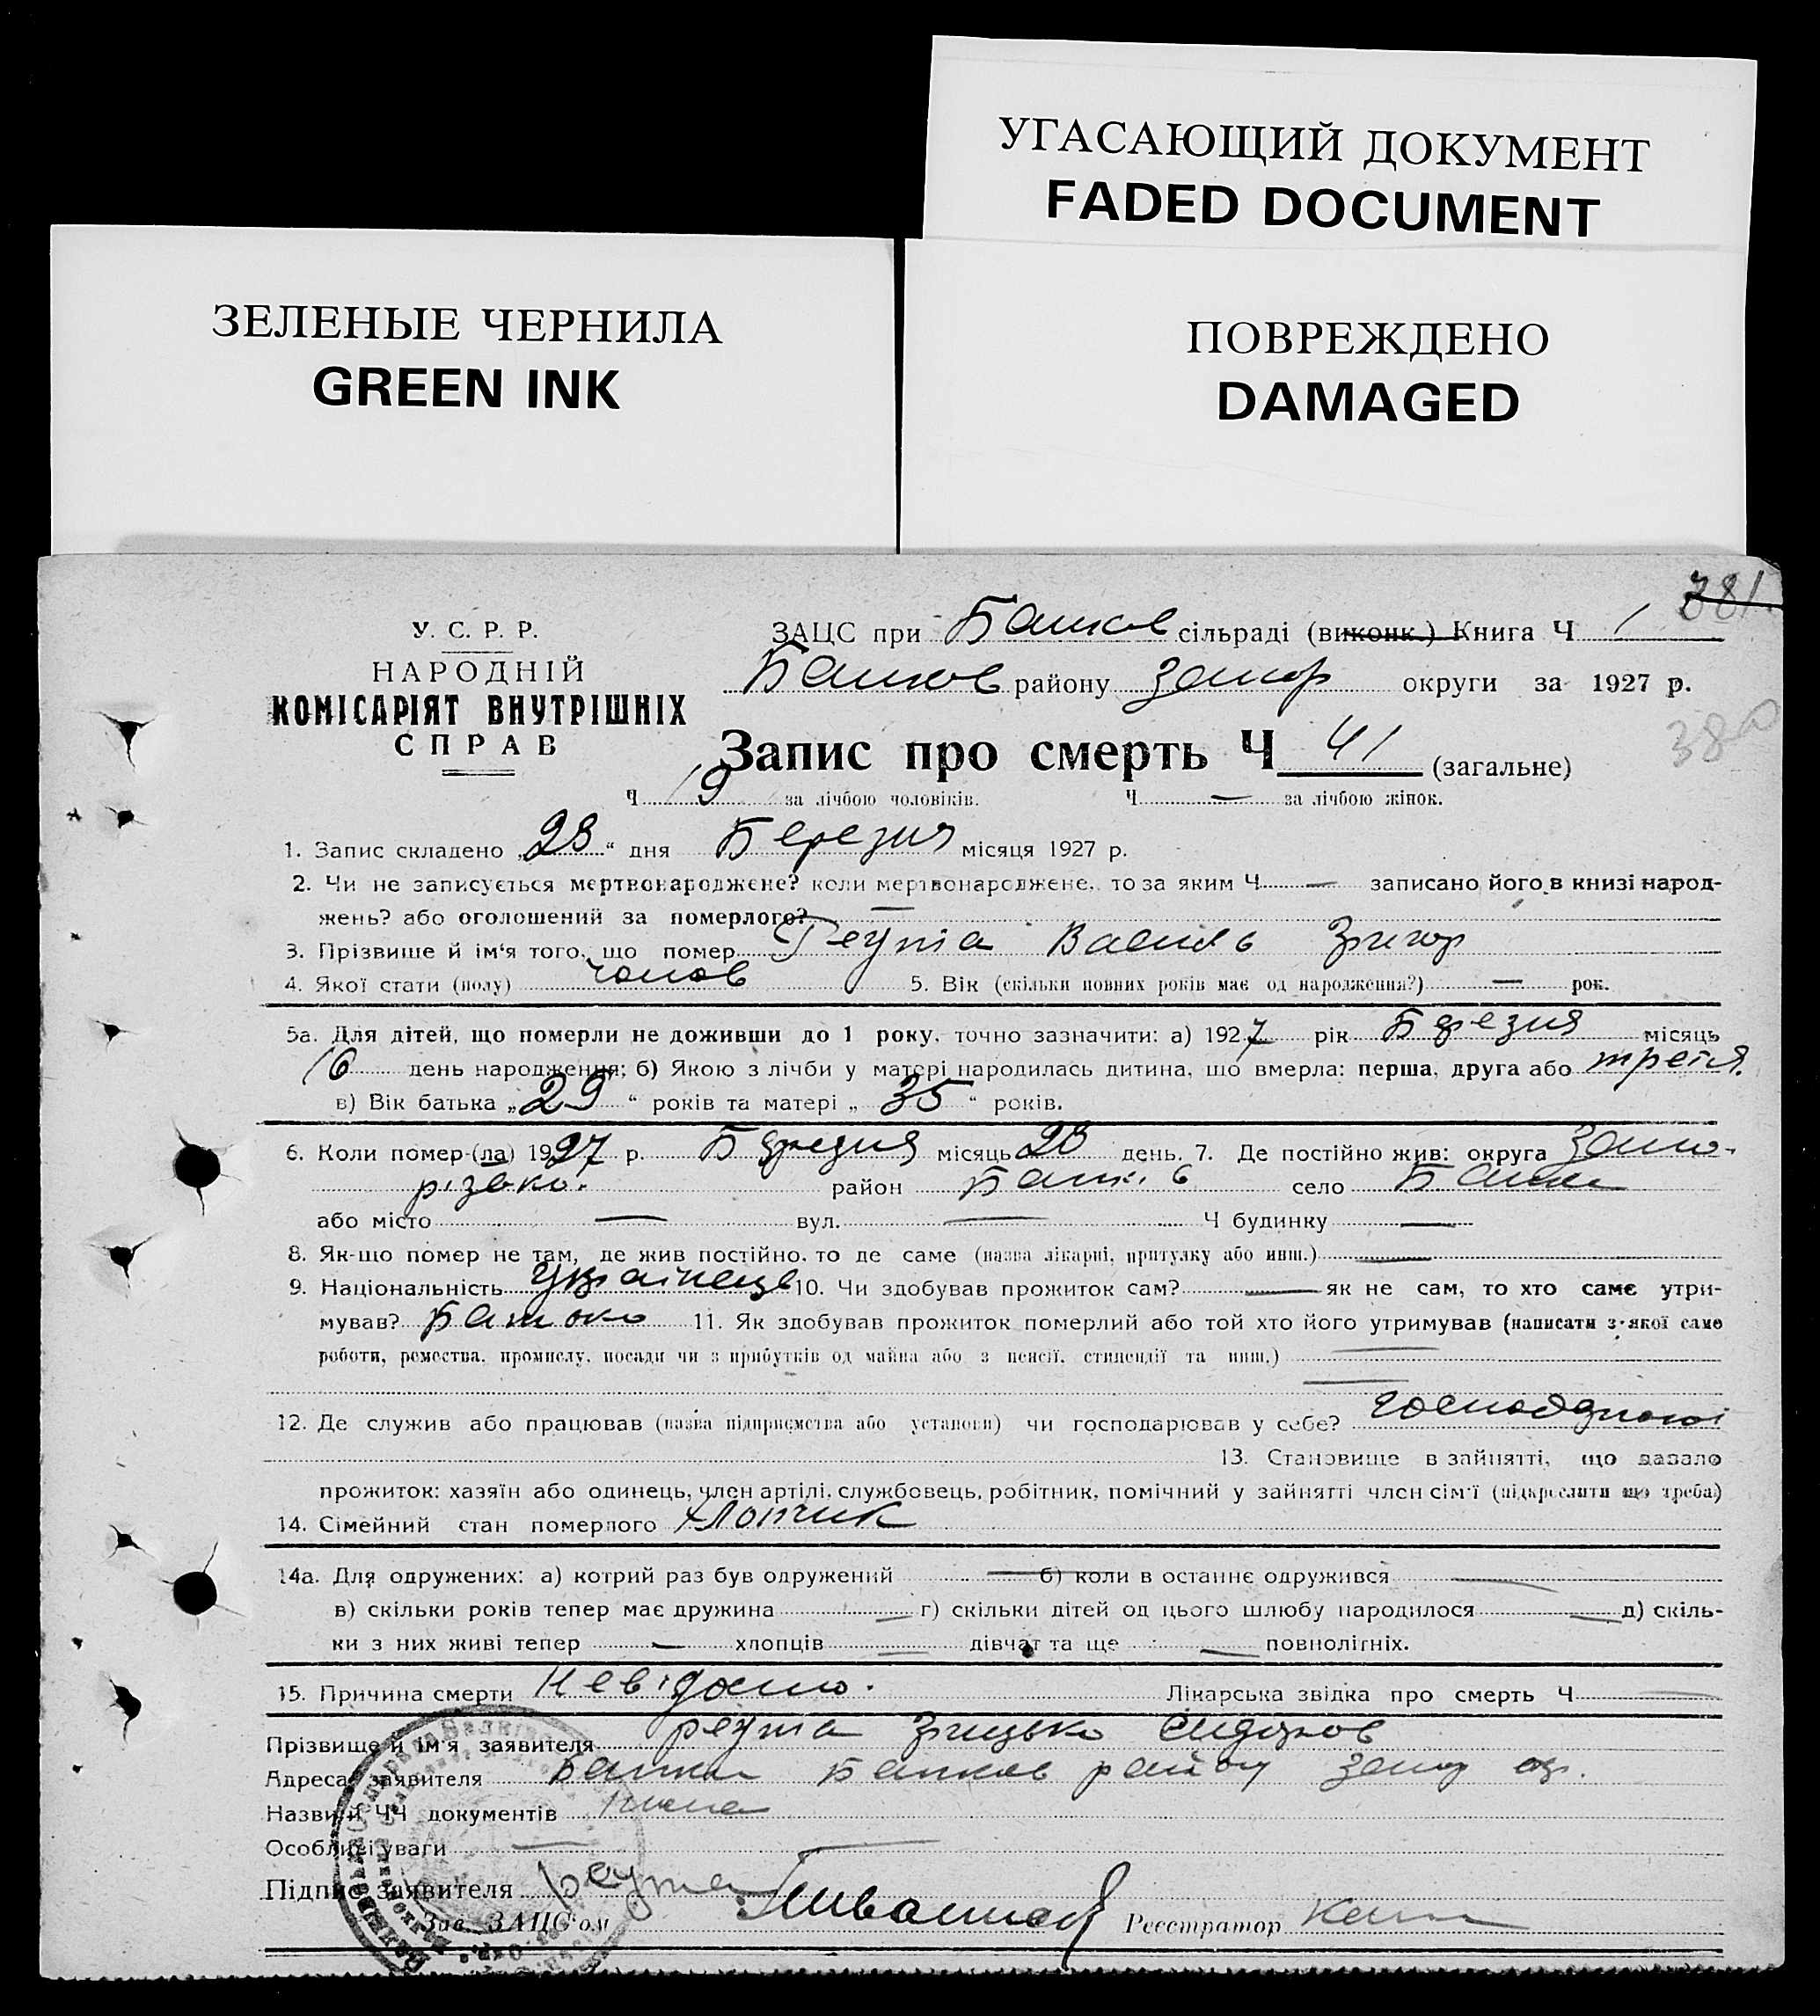 УГАСАЮЩИЙ ДОКУМЕНТ
FADED DOCUMENT
ЗЕЛЕНЫЕ ЧЕРНИЛА
GREEN INK
ПОВРЕЖДЕНО
DAMAGED
381
У. С. Р. Р.
НАРОДНІЙ
КОМІСАРІЯТ ВНУТРІШНІХ
СПРАВ
ЗАЦС при Балков сільраді (виконк.) Книга Ч 1
Балков району Запор округи за 1927 р.
380
Запис про смерть Ч 41 (загальне)
Ч 19 за лічбою чоловіків. Ч — за лічбою жінок.
1. Запис складено „28“ дня Березня місяця 1927 р.
2. Чи не записується мертвонароджене? коли мертвонароджене, то за яким Ч — записано його в книзі народ-
жень? або оголошений за померлого? —
3. Прізвище й ім'я того, що помер Реута Василь Григор
4. Якої стати (полу) чолов 5. Вік (скільки повних років має од народження?) — рок.
5а. Для дітей, що померли не доживши до 1 року, точно зазначити: а) 1927 рік Березня місяць
16 день народження; б) Якою з лічби у матері народилась дитина, що вмерла: перша, друга або третя.
в) Вік батька „29“ років та матері „35“ років.
6. Коли помер (ла) 1927 р. Березня місяць 28 день. 7. Де постійно жив: округа Запо-
різько. район Балків село Балки
або місто — вул. — Ч будинку —
8. Як-що помер не там, де жив постійно, то де саме (назва лікарні, притулку або инш.) —
9. Національність Українець 10. Чи здобував прожиток сам? — як не сам, то хто саме утри-
мував? Батько 11. Як здобував прожиток померлий або той хто його утримував (написати з якої саме
роботи, ремества, промислу, посади чи з прибутків од майна або з пенсії, стипендії та инш.) —
—
12. Де служив або працював (назва підприємства або установи) чи господарював у себе?
13. Становище в зайнятті, що давало
прожиток: хазяїн або одинець, член артілі, службовець, робітник, помічний у зайнятті член сім'ї (підкреслити що треба)
14. Сімейний стан померлого хлопчик
14а. Для одружених: а) котрий раз був одружений — б) коли в останнє одружився —
в) скільки років тепер має дружина — г) скільки дітей од цього шлюбу народилося — д) скіль-
ки з них живі тепер — хлопців — дівчат та ще — повнолітніх.
15. Причина смерти Невідомо. Лікарська звідка про смерть Ч —
Прізвище й ім'я заявителя Реута Грицько Сидоров
Адреса заявителя Балки Балков району Запор окр.
Назви й ЧЧ документів нема
Особливі уваги —
Підпис заявителя Реута
Зав. ЗАЦС'ом Реєстратор